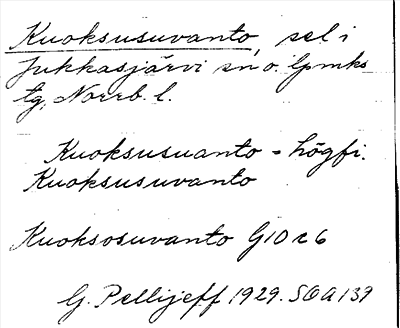 Kuoksusuvanto, sel i
Jukkasjärvi sn o. lpmks
tg, Norrb. l.
Kuoksusuanto - högfi.
Kuoksusuvanto
Kuoksosuvanto G10 r 6
G. Pellijeff 1929. SOA 139